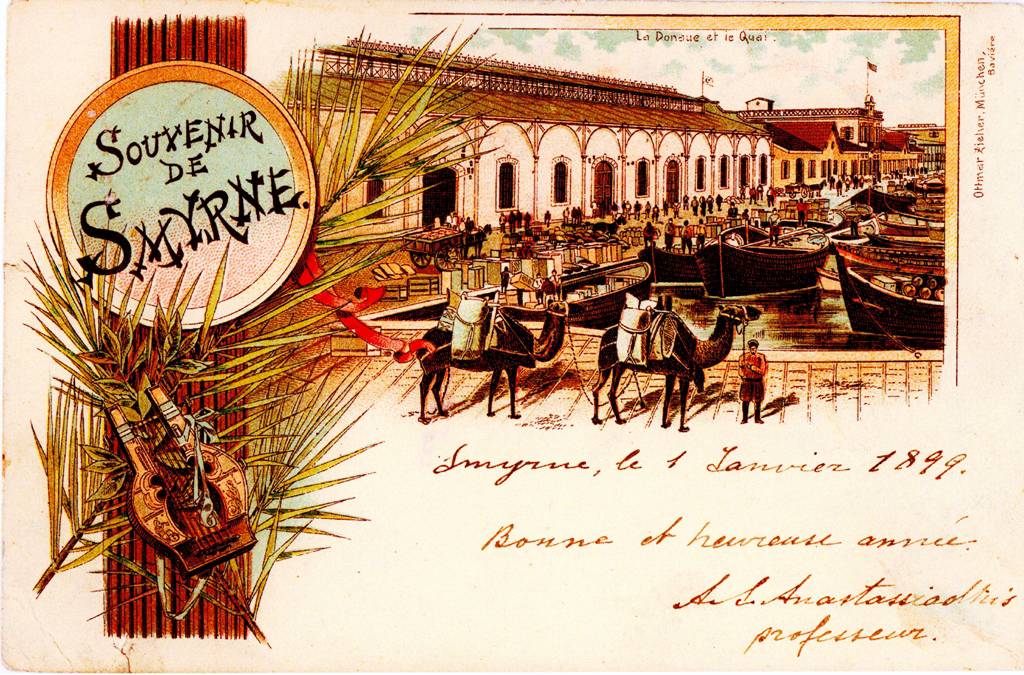 SOUVENIR
DE
SMYRNE.
La Donaue et le Quai.
Ottmar Zieher, München,
Bavière
Smyrne, le 1 Janvier 1899.
Bonne et heureuse année.
A. S. Anastassiadhis
professeur.